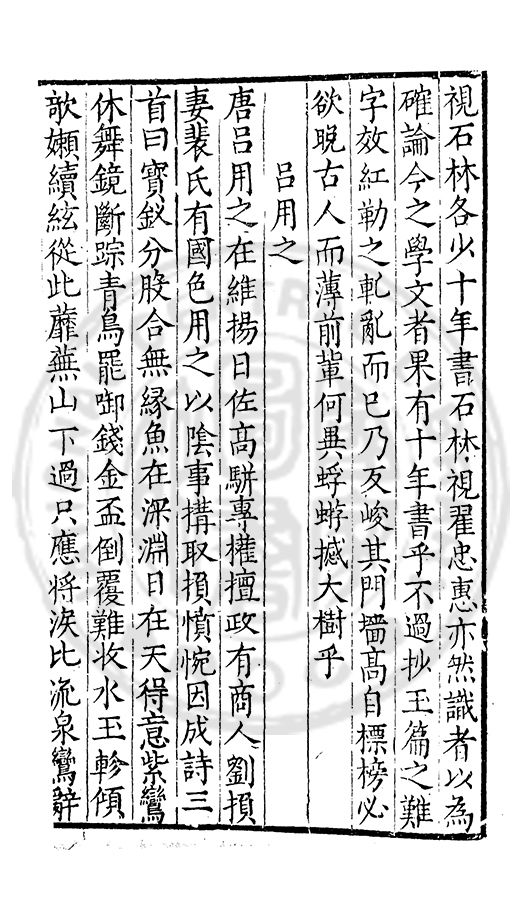 視石林各少十年書石林視翟忠惠亦然識者以為
確論今之學文者果有十年書乎不過抄玉篇之難
字效紅勒之軋亂而已乃反峻其門墻高自標榜必
欲晩古人而薄前輩何異蜉蝣撼大樹乎
呂用之
唐呂用之在維揚日佐高駢專權擅政有商人劉損
妻裴氏有國色用之以陰事搆取損憤惋因成詩三
首曰寶釵分股合無緣魚在深淵日在天得意紫鸞
休舞鏡斷踪青鳥罷啣錢金盃倒覆難收水玉軫傾
欹嬾續絃從此蘼蕪山下過只應将淚比流泉鸞辭